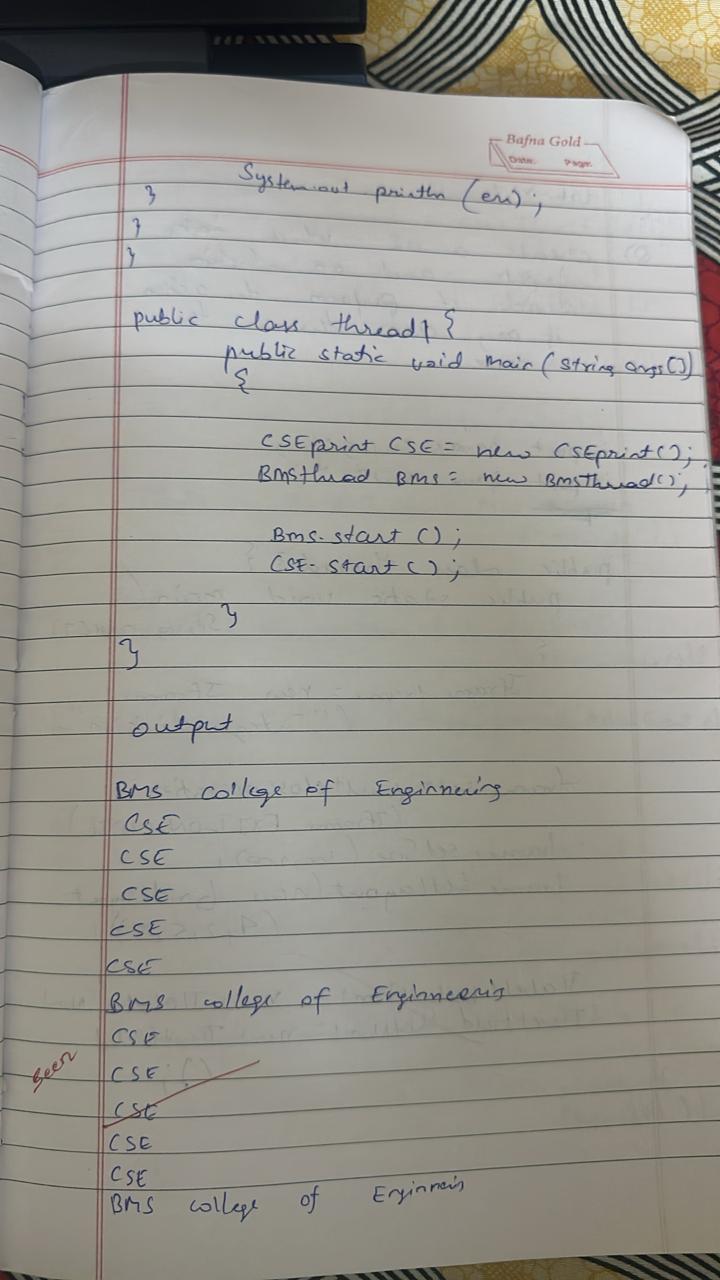 Bafna Gold
Date: Page:
System.out println (en);
}
}
}
public class thread1 {
public static void main (string args[])
{
CSEprint CSE = new CSEprint();
BMSthread BMS = new BMSThread();
Bms.start ();
CSE.start ();
}
}
output
BMS college of Enginnering
CSE
CSE
CSE
CSE
CSE
BMS college of Enginneering
CSE
CSE
seen
CSE
CSE
CSE
BMS college of Enginneis